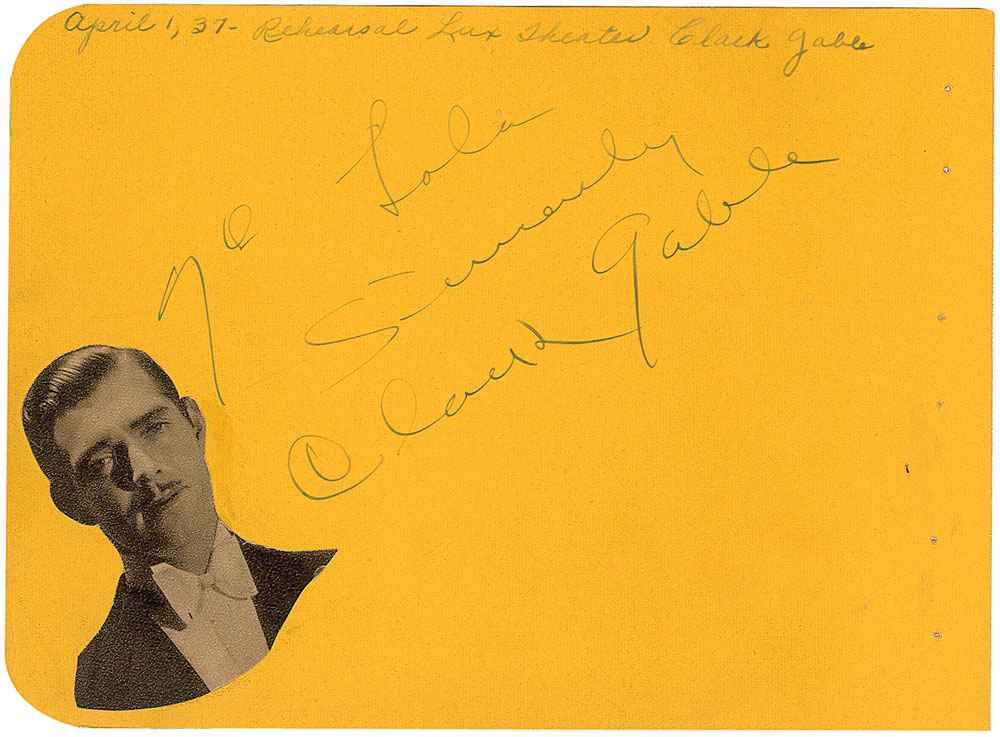 April 1, 37- Rehearsal Lux Theater Clark Gable
To Lola
Sincerely
Clark Gable